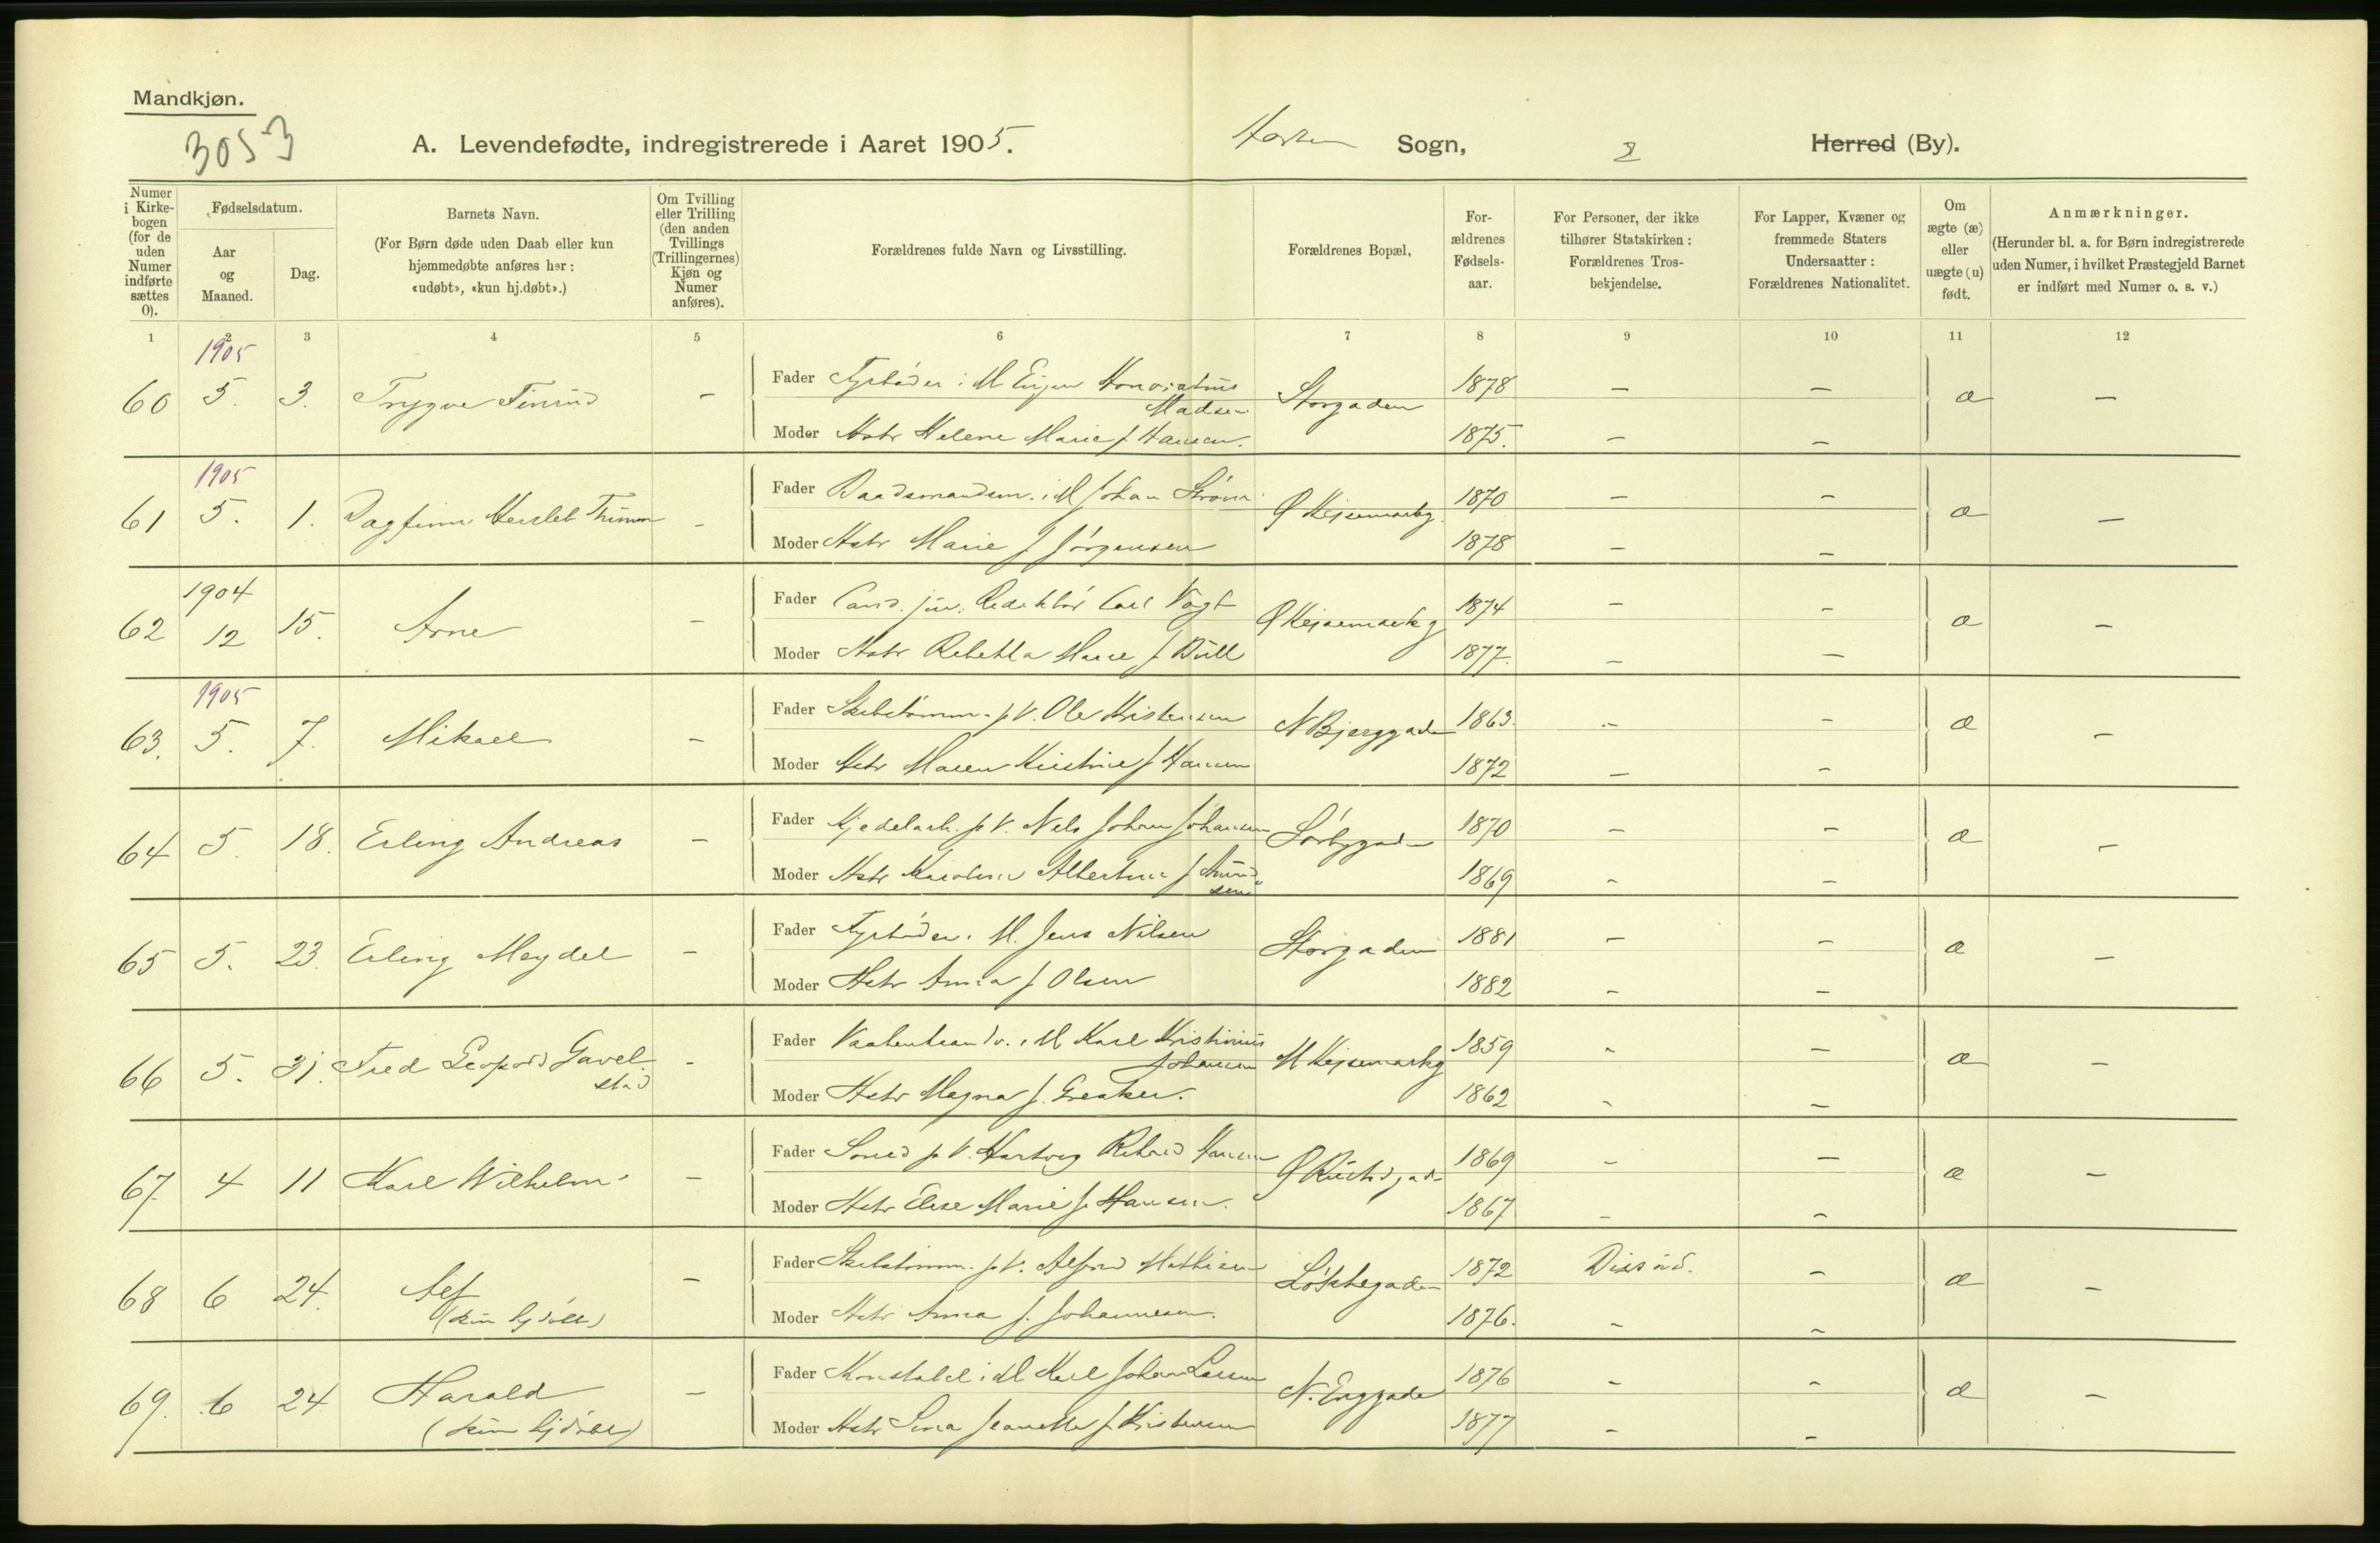 Mandkjøn.
3053
A. Levendefødte, indregistrerede i Aaret 1905.
Horten Sogn, Herred (By).
Numer i Kirkebogen (for de uden Numer indførte sættes 0).
Fødselsdatum.
Aar og Maaned.
Dag.
Barnets Navn.
(For Børn døde uden Daab eller kun hjemmedøbte anføres her: «udøbt», «kun hj.døbt».)
Om Tvilling eller Trilling (den anden Tvillings (Trillingernes) Kjøn og Numer anføres).
Forældrenes fulde Navn og Livsstilling.
Forældrenes Bopæl,
Forældrenes Fødselsaar.
For Personer, der ikke tilhører Statskirken: Forældrenes Trosbekjendelse.
For Lapper, Kvæner og fremmede Staters Undersaatter: Forældrenes Nationalitet.
Om ægte (æ) eller uægte (u) født.
Anmærkninger.
(Herunder bl. a. for Børn indregistrerede uden Numer, i hvilket Præstegjeld Barnet er indført med Numer o. s. v.)
1 2 3 4 5 6 7 8 9 10 11 12
1905
60 5. 3. Trygve – Fader Fyrbøder i M Madsen Storgaden 1878 – – æ –
Moder Hstr Helene Marie f Hansen. 1875. – –
1905
61 5. 1. Dagfinn Herslet – Fader Baadsmandsm. i M Johan Strøm Ø Kejsemarkg 1870 – – æ –
Moder Hstr Marie f Jørgensen 1878 – –
1904
62 12 15. Arne – Fader Cand. jur. Redaktør Carl Vogt Ø Kejsemarkg 1874 – – æ –
Moder Hstr Rebekka Marie f Bull 1877. – –
1905
63. 5. 7. Mikael – Fader Skibstømm. p V. Ole Kristensen N Bjerggaden 1863. – – æ –
Moder Hstr Maren Kristine f Hansen 1872 – –
64 5. 18. Erling Andreas – Fader Kjedelarb. p V. Nels Johan Johansen Sørbygaden 1870 – – æ –
Moder Hstr Karoline Albertine f Amundsen 1869 – –
65 5. 23. Erling Meydel – Fader Fyrbøder i M. Jens Nilsen Storgaden 1881 – – æ –
Moder Hstr Anna f Olsen 1882 – –
66 5. 31. Fred Leopold Gavelstad – Fader i M Karl Kristinius Johansen M Kejsemarkg 1859 – – æ –
Moder Hstr Magna f. Greaker. 1862 – –
67 4 11 Karl Wilhelm – Fader Smed p V. Hartvig Rikard Hansen Ø 1869 – – æ –
Moder Hstr Elise Marie f. Hansen. 1867 – –
68 6 24. Alf – Fader Skibstømm. p V. Alfred Mathisen Løkkegaden 1872 Dissid. – æ –
(kun hjdøbt) Moder Hstr Anna f. Johannesen. 1876. – –
69. 6 24 Harald – Fader Konstabel i M Karl Johan Larsen N. Enggade 1876 – – æ –
(kun hjdøbt) Moder Hstr Lina Jeanette f Kristensen 1877 – –